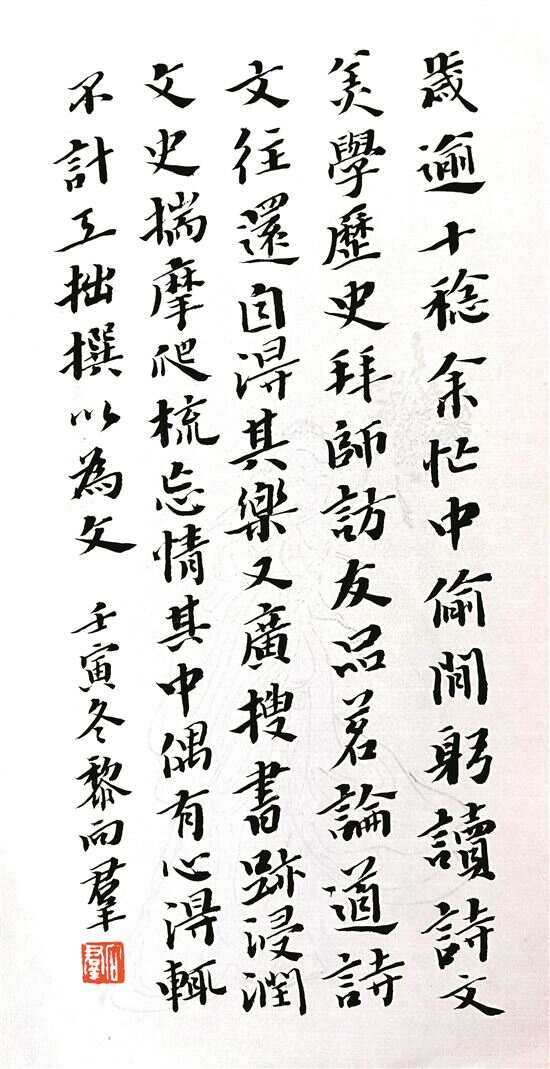 歲逾十稔余忙中偷閒躬讀詩文
美學歷史拜師訪友品茗論道詩
文往還自得其樂又廣搜書跡浸潤
文史揣摩爬梳忘情其中偶有心得輒
不計工拙撰以為文 壬寅冬黎向羣
向羣